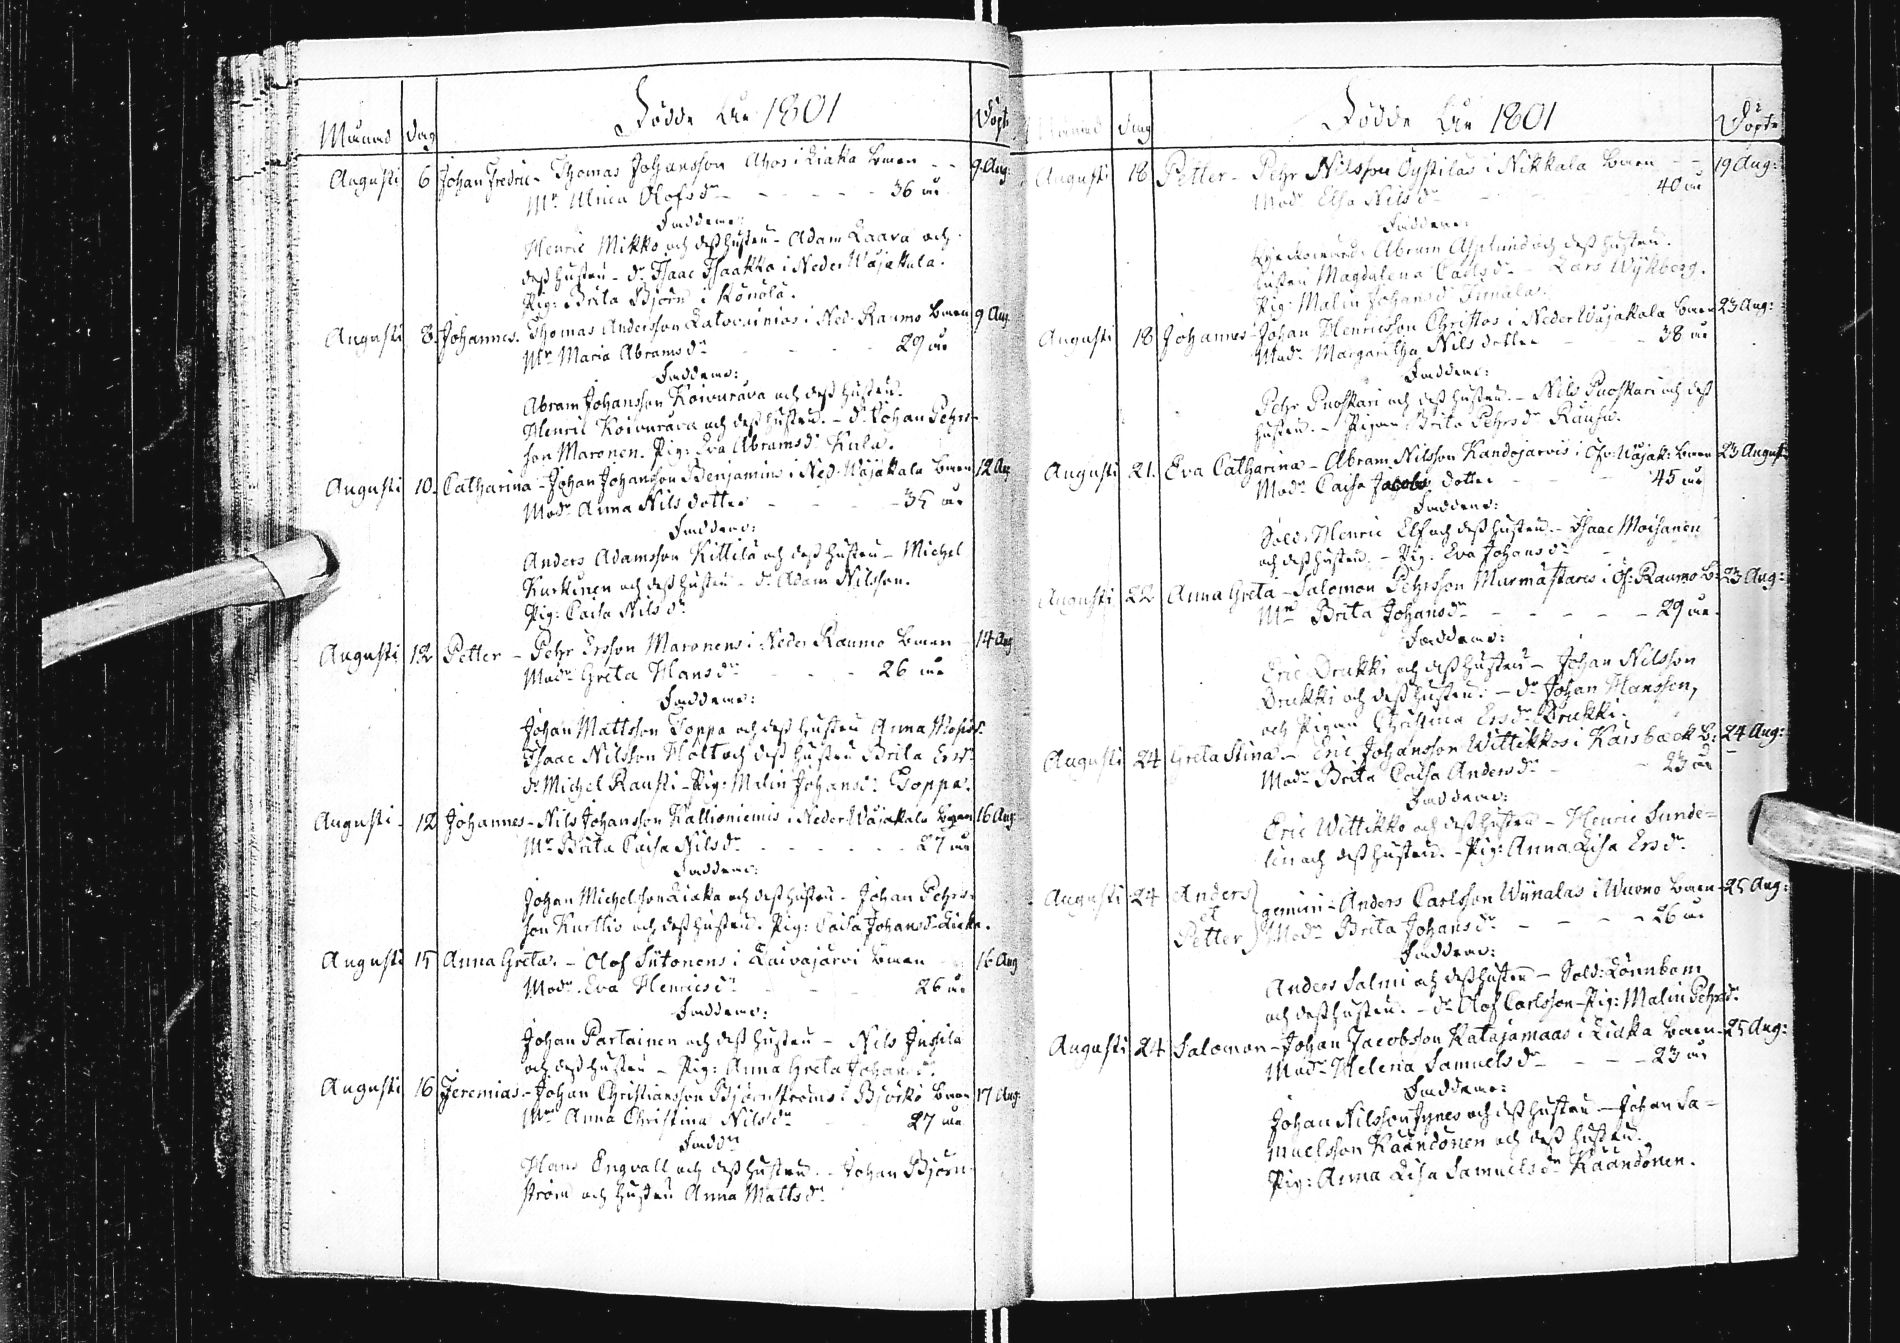 Födde År 1801
Månad Dag Döpte
Augusti 6 Johan Fredric - Thomas Johansson Ahos i Liaka barn - - 9 Aug:
Mr Ulrica Olofs dr - - - - - 36 år
Faddrar:
Henric Mikko och dess hustru - Adam Laara och
dess hustru - dr Isaac Isaakka i Neder Wojakkala.
Pig: Brita Björn i Könölä.
Augusti 8 Johannes - Thomas Andersson Latovainios i Ned: Raumo barn 9 Aug
Mr Maria Abrams dr - - - 29 år
Faddrar:
Abram Johansson Koivurova och dess hustru.
Henric Koivurova och dess hustru. - dr Johan Pehrs-
son Maronen. Pig: Eva Abrams dr Kula.
Augusti 10 Catharina - Johan Johansson Benjamins i Ned: Wojakkala barn 12 Aug
Modr Anna Nils dotter - - - 35 år
Faddrar:
Anders Adamsson Kittilä och dess hustru - Michel
Kurkinen och dess hustru - dr Adam Nilsson.
Pig: Caisa Nils dr
Augusti 12 Petter - Pehr Ersson Maronens i Neder Raumo barn - 14 Aug
Modr Greta Hans dr - - - 26 år
Faddrar:
Johan Mattsson Toppa och dess hustru Anna
Isaac Nilsson Holt och dess hustru Brita Ers dr
dr Michel Rauti - Pig: Malin Johans dr Toppa.
Augusti - 12 Johannes - Nils Johansson Kallioniemis i Neder Wojakkala barn 16 Aug:
Mr Brita Caisa Nils dr - - - - - 27 år
Faddrar:
Johan Michelsson Liaka och dess hustru - Johan Pehrs-
son Kurttio och dess hustru. Pig: Caisa Johans dr Liaka.
Augusti 15 Anna Greta. - Olof Siitonens i Laivajärvi barn - 16 Aug
Modr Eva Henrics dr - - - 26 år
Faddrar:
Johan Partainen och dess hustru - Nils Jussila
och dess hustru - Pig: Anna Greta Johans dr
Augusti 16 Jeremias - Johan Christiansson Björnströms i Björkö barn 17 Aug:
Mr Anna Christina Nils dr - - 27 år
Fadd:
Hans Engvall och dess hustru. - Johan Björn-
ström och hustru Anna Matts dr
Födde År 1801
Månad Dag Döpte
Augusti 18 Petter - Pehr Nilsson Oystilas i Nikkala barn - - 19 Aug:
Modr Elsa Nils dr - - - 40 år
Faddrar:
Abram Asplund och dess hustru.
hustru Magdalena Carls dr - Lars Wykberg.
Pig: Malin Johans dr
Augusti 18 Johannes - Johan Henricsson Christos i Neder Wojakkala barn 23 Aug:
Modr Margaretha Nils dotter - - 38 år
Faddrar:
Pehr Puoskari och dess hustru. - Nils Puoskari och dess
hustru. - Pigan Brita Pehrs dr Rauhu.
Augusti 21. Eva Catharina - Abram Nilsson Kandojärvis i Öfv: Wojak: barn 23 August
Modr Caisa Jacobs dotter - - - 45 år
Faddrar:
Sold: Henric Elf och dess hustru. - Isaac Moisanen
och dess hustru. - Pig: Eva Johans dr
Augusti 22 Anna Greta - Salomon Pehrsson Murmästares i Öf: Raumo b: 23 Aug:
Mr Brita Johans dr - - - - - 29 år.
Faddrar:
Eric Drukki och dess hustru - Johan Nilsson
Drukki och dess hustru. - dr Johan Hansson,
och Pigan Christina Ers dr Drukki.
Augusti 24 Greta Stina - Eric Johansson Wittikkos i Karsbäck b: 24 Aug:
Modr Brita Caisa Anders dr - - 23 år
Faddrar:
Eric Wittikko och dess hustru - Henric Sunde-
lin och dess hustru. - Pig: Anna Lisa Ers dr
Augusti 24 Anders et Petter gemini - Anders Carlsson Wynalas i Wuono barn - 25 Aug:
Modr Brita Johans dr - - - 26 år
Faddrar:
Anders Salmi och dess hustru - Sold: Lönnbom
och dess hustru. - dr Olof Carlsson - Pig: Malin Pehrs dr.
Augusti 24 Salomon - Johan Jacobsson Katajamaas i Liaka barn - 25 Aug:
Modr Helena Samuels dr - - - 23 år
Faddrar:
Johan Nilsson Jynes och dess hustru - Johan Sa-
muelsson Käändönen och dess hustru.
Pig: Anna Lisa Samuels dr Käändönen.